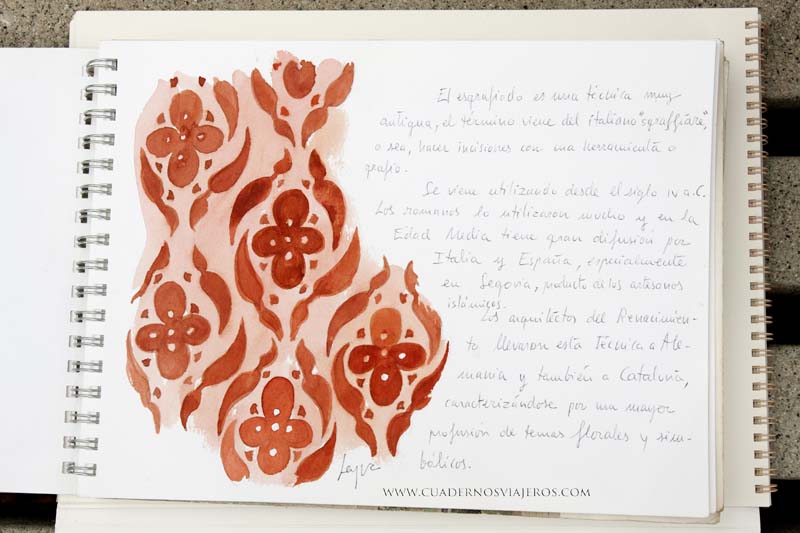 El esgrafiado es una técnica muy
antigua, el término viene del italiano "sgraffiare",
o sea, hacer incisiones con una herramienta o
grafio.
Se viene utilizando desde el siglo IV a.C.
Los romanos lo utilizaron mucho y en la
Edad Media tiene gran difusión por
Italia y España, especialmente
en Segovia, producto de los artesanos
islámicos.
Los arquitectos del Renacimien-
to llevaron esta técnica a Ale-
mania y también a Cataluña,
caracterizándose por una mayor
profusión de temas florales y sim-
bólicos.
WWW.CUADERNOSVIAJEROS.COM